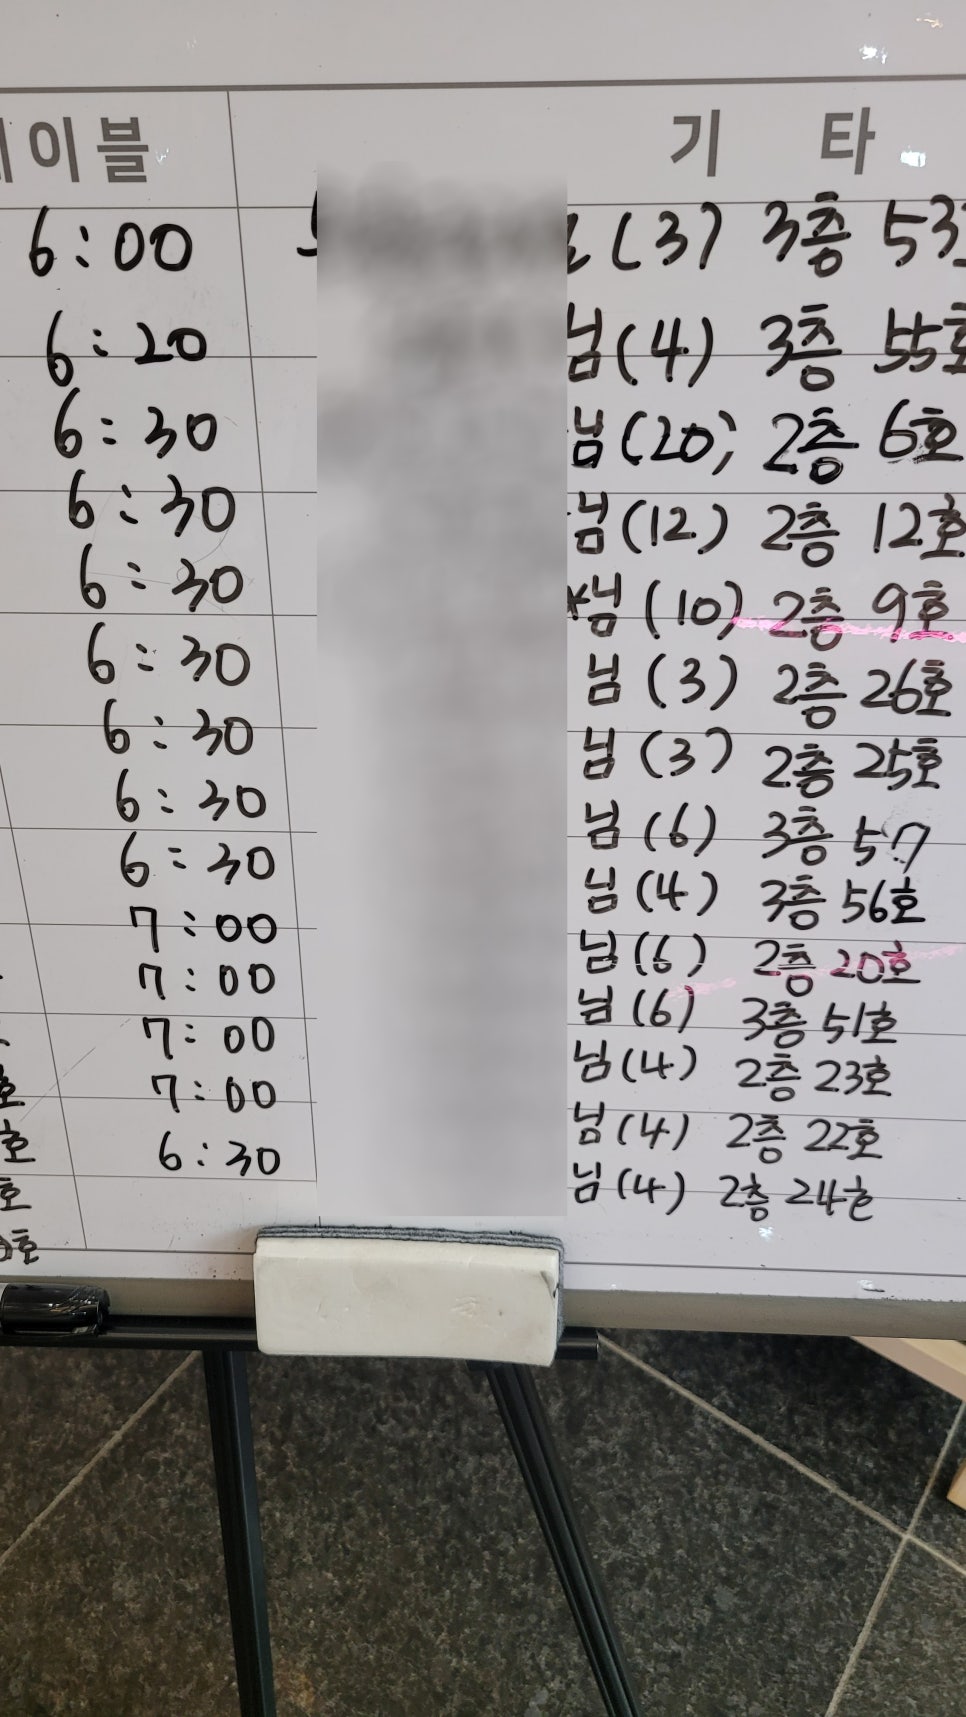 이블 기 타
6:00 (3) 3층 53
6:20 님(4) 3층 55호
6:30 님(20) 2층 6호
6:30 님(12) 2층 12호
6:30 님(10) 2층 9호
6:30 님(3) 2층 26호
6:30 님(3) 2층 25호
6:30 님(6) 3층 57
6:30 님(4) 3층 56호
7:00 님(6) 2층 20호
7:00 님(6) 3층 51호
7:00 님(4) 2층 23호
7:00 님(4) 2층 22호
6:30 님(4) 2층 24호
호
호
호
호